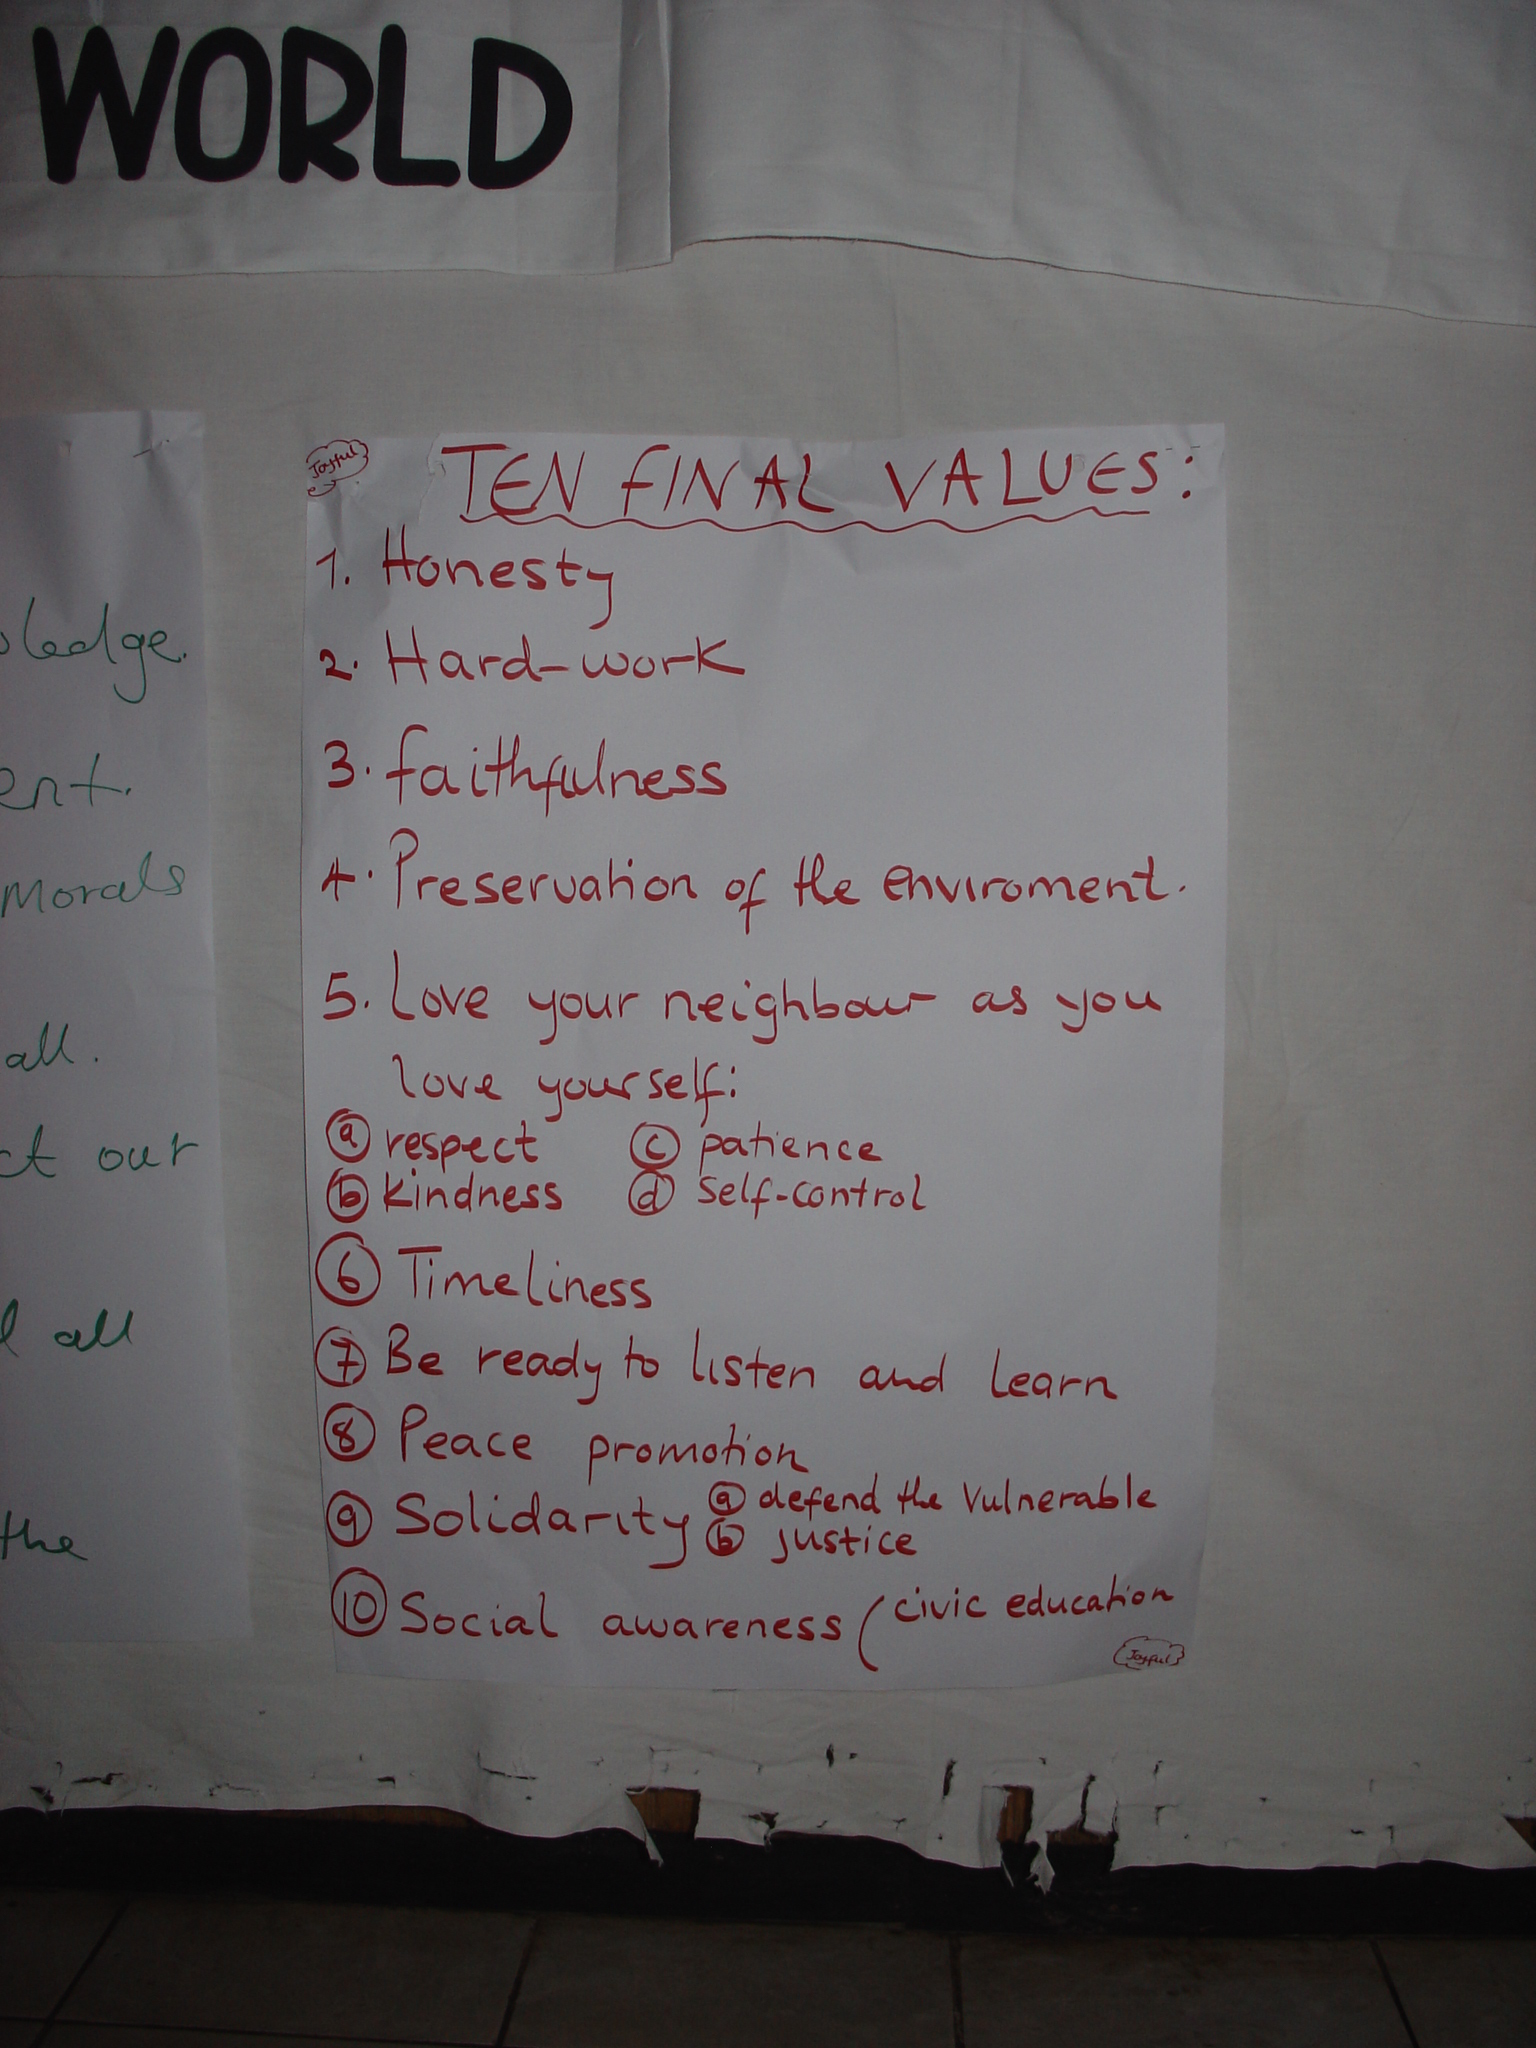 WORLD
Joyful
TEN FINAL VALUES:
1. Honesty
2. Hard-work
3. faithfulness
4. Preservation of the enviroment.
5. Love your neighbour as you
love yourself:
a respect c patience
b kindness d self-control
6 Timeliness
7 Be ready to listen and learn
8 Peace promotion
9 Solidarity a defend the vulnerable
b justice
10 Social awareness (civic education
Joyful
ledge.
ent.
Morals
all.
ct our
all
the